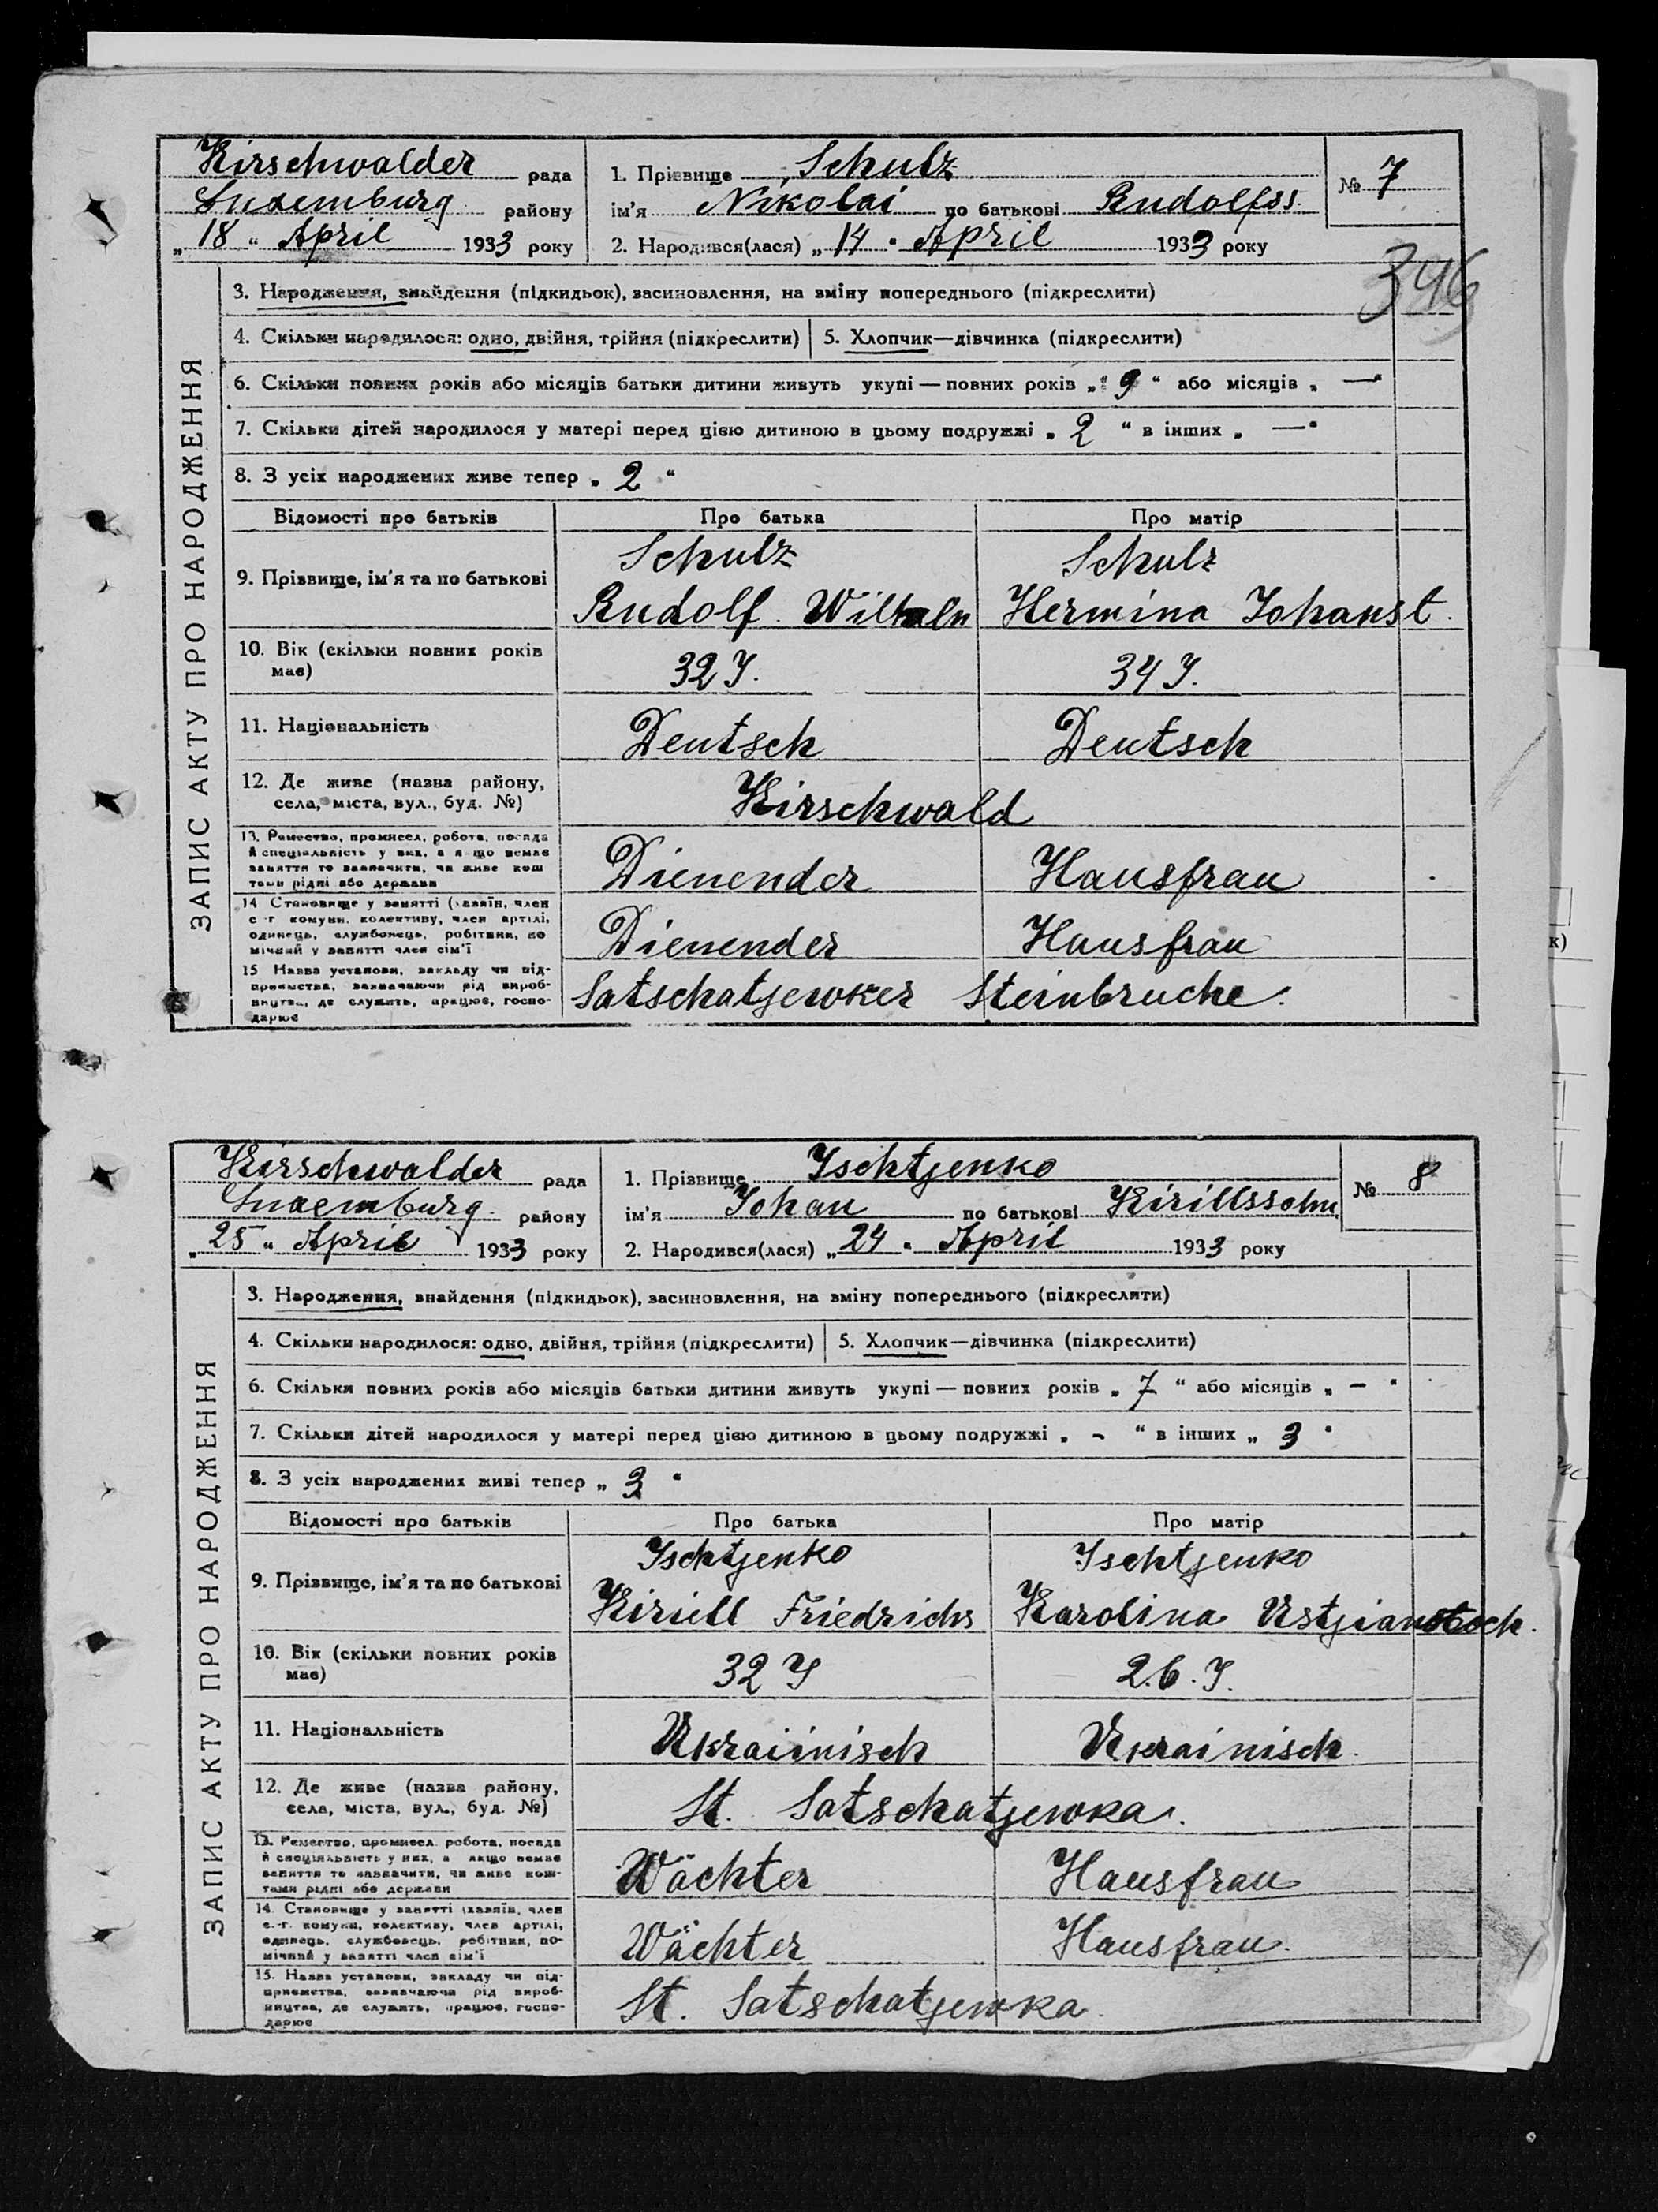 Kirschwalder рада
Luxemburg району
„18“ April 1933 року
1. Прізвище Schulz
ім'я Nikolai по батькові Rudolfss.
2. Народився(лася) „14“ April 1933 року
№ 7
346
ЗАПИС АКТУ ПРО НАРОДЖЕННЯ
3. Народження, знайдення (підкидьок), засиновлення, на зміну попереднього (підкреслити)
4. Скільки народилося: одно, двійня, трійня (підкреслити) 5. Хлопчик—дівчинка (підкреслити)
6. Скільки повних років або місяців батьки дитини живуть укупі — повних років „9“ або місяців „—“
7. Скільки дітей народилося у матері перед цією дитиною в цьому подружжі „2“ в інших „—“
8. З усіх народжених живе тепер „2“
Відомості про батьків Про батька Про матір
9. Прізвище, ім'я та по батькові
Schulz Schulz
Rudolf Wilhelm Hermina Johanst.
10. Вік (скільки повних років має) 32 J. 34 J.
11. Національність Deutsch Deutsch
12. Де живе (назва району, села, міста, вул., буд. №) Kirschwald
13. Ремество, промисел, робота, посада
й спеціяльність у них, а якщо немає
заняття то зазначити, чи живе кош
тами рідні або держави
Dienender Hausfrau
14 Становище у занятті (хазяїн, член
с.-г комуни, колективу, член артілі,
одинець, службовець, робітник, по
мічний у занятті член сім'ї
Dienender Hausfrau
15 Назва установи, закладу чи під-
приємства, зазначаючи рід вироб-
ництва, де служить, працює, госпо-
дарює
Satschatjewker Steinbruche.
Kirschwalder рада
Luxemburg району
„25“ April 1933 року
1. Прізвище Ischtjenko
ім'я Johan по батькові Kirillssohn
2. Народився(лася) „24“ April 1933 року
№ 8
ЗАПИС АКТУ ПРО НАРОДЖЕННЯ
3. Народження, знайдення (підкидьок), засиновлення, на зміну попереднього (підкреслити)
4. Скільки народилося: одно, двійня, трійня (підкреслити) 5. Хлопчик—дівчинка (підкреслити)
6. Скільки повних років або місяців батьки дитини живуть укупі — повних років „7“ або місяців „—“
7. Скільки дітей народилося у матері перед цією дитиною в цьому подружжі „-“ в інших „3“
8. З усіх народжених живі тепер „3“
Відомості про батьків Про батька Про матір
9. Прізвище, ім'я та по батькові
Ischtjenko Ischtjenko
Kirill Friedrichs Karolina
10. Вік (скільки повних років має) 32 J 26. J.
11. Національність Ukrainisch Ukrainisch.
12. Де живе (назва району, села, міста, вул., буд. №) St. Satschatjewka.
13. Ремество, промисел робота, посада
й спеціяльність у них, а якщо немає
заняття то зазначити, чи живе кош-
тами рідні або держави
Wächter Hausfrau
14. Становище у занятті (хазяїн, член
с.-г. комуни, колективу, член артілі,
одинець, службовець, робітник, по-
мічний у занятті член сім'ї
Wächter Hausfrau.
15. Назва установи, закладу чи під-
приємства, зазначаючи рід вироб-
ництва, де служить, працює, госпо-
дарює
St. Satschatjewka.